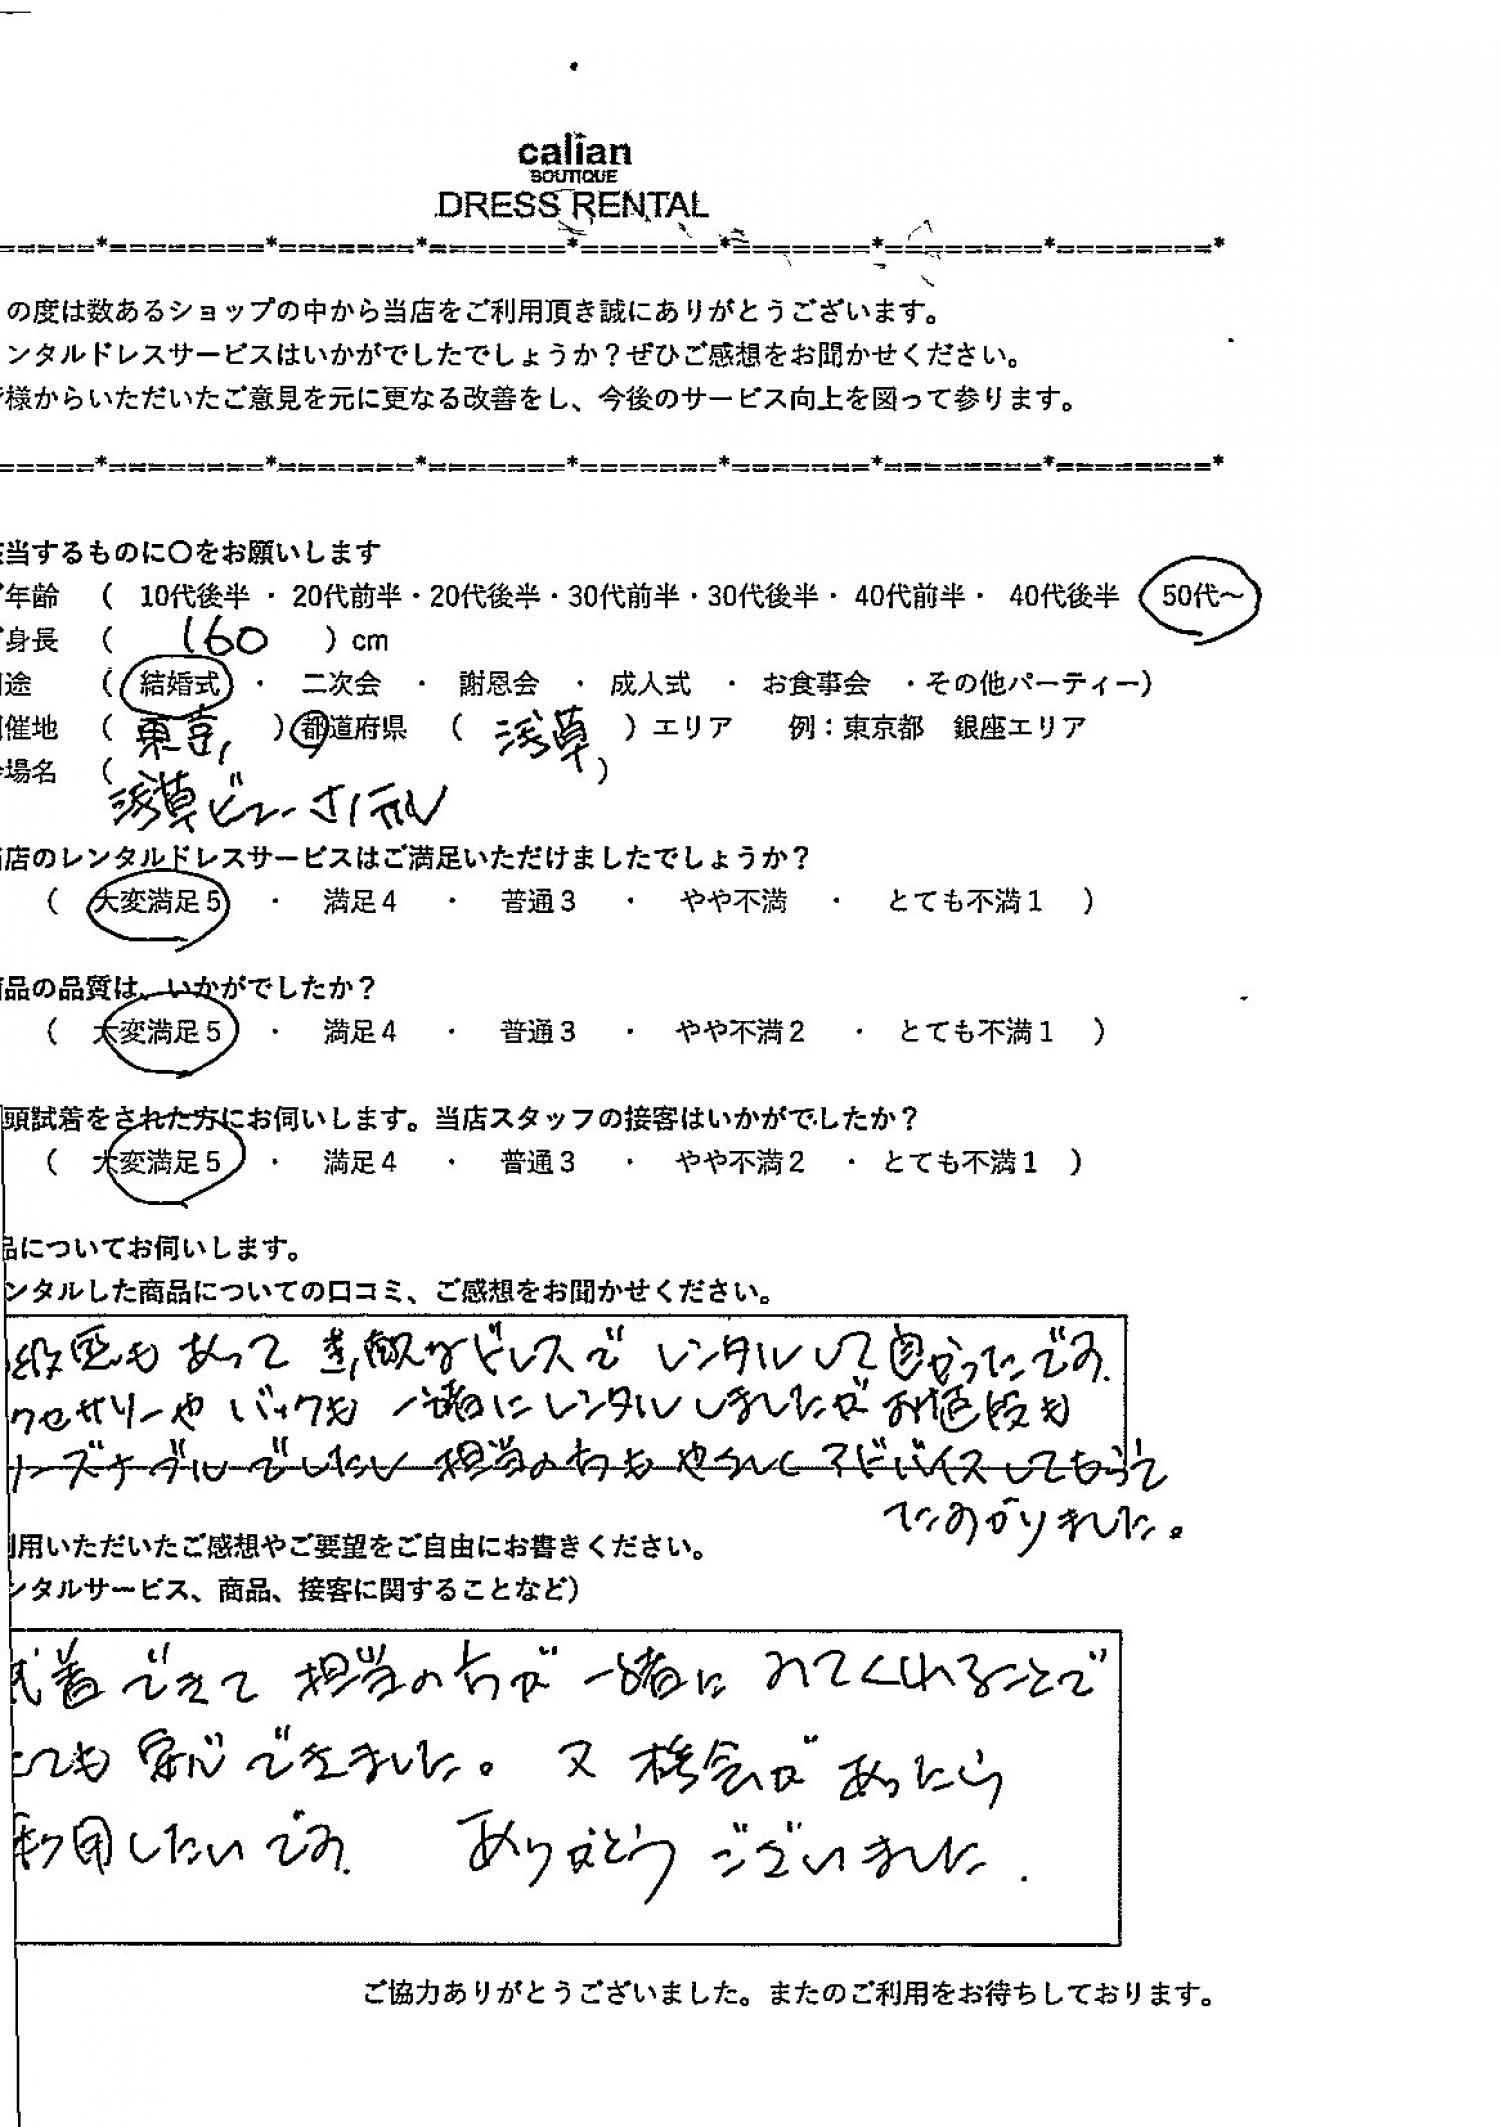 calian
BOUTIQUE
DRESS RENTAL
=====*========*=======*=======*=======*=======*========*========*
の度は数あるショップの中から当店をご利用頂き誠にありがとうございます。
ンタルドレスサービスはいかがでしたでしょうか？ぜひご感想をお聞かせください。
様からいただいたご意見を元に更なる改善をし、今後のサービス向上を図って参ります。
=====*========*=======*=======*=======*=======*========*========*
当するものに〇をお願いします
年齢 （ 10代後半 ・ 20代前半・20代後半・30代前半・30代後半・ 40代前半・ 40代後半 50代～
身長 （ 160 ）cm
途 （ 結婚式 ・ 二次会 ・ 謝恩会 ・ 成人式 ・ お食事会 ・その他パーティー）
催地 （ 東京 ）都道府県 （ 浅草 ）エリア 例：東京都 銀座エリア
場名 （ ）
浅草ビューホテル
店のレンタルドレスサービスはご満足いただけましたでしょうか？
（ 大変満足５ ・ 満足４ ・ 普通３ ・ やや不満 ・ とても不満１ ）
品の品質は、いかがでしたか？
（ 大変満足５ ・ 満足４ ・ 普通３ ・ やや不満２ ・ とても不満１ ）
頭試着をされた方にお伺いします。当店スタッフの接客はいかがでしたか？
（ 大変満足５ ・ 満足４ ・ 普通３ ・ やや不満２ ・ とても不満１ ）
品についてお伺いします。
ンタルした商品についての口コミ、ご感想をお聞かせください。
級感もあって 素敵なドレスで レンタルして良かったです.
クセサリーや バックも 一緒にレンタルしましたが お値段も
リーズナブルでしたし 担当の方も やさしく アドバイスしてもらって
たすかりました。
利用いただいたご感想やご要望をご自由にお書きください。
ンタルサービス、商品、接客に関することなど）
試着できて 担当の方が 一緒に みてくれることで
とても 安心できました。 又 機会が あったら
利用したいです. ありがとう ございました.
ご協力ありがとうございました。またのご利用をお待ちしております。